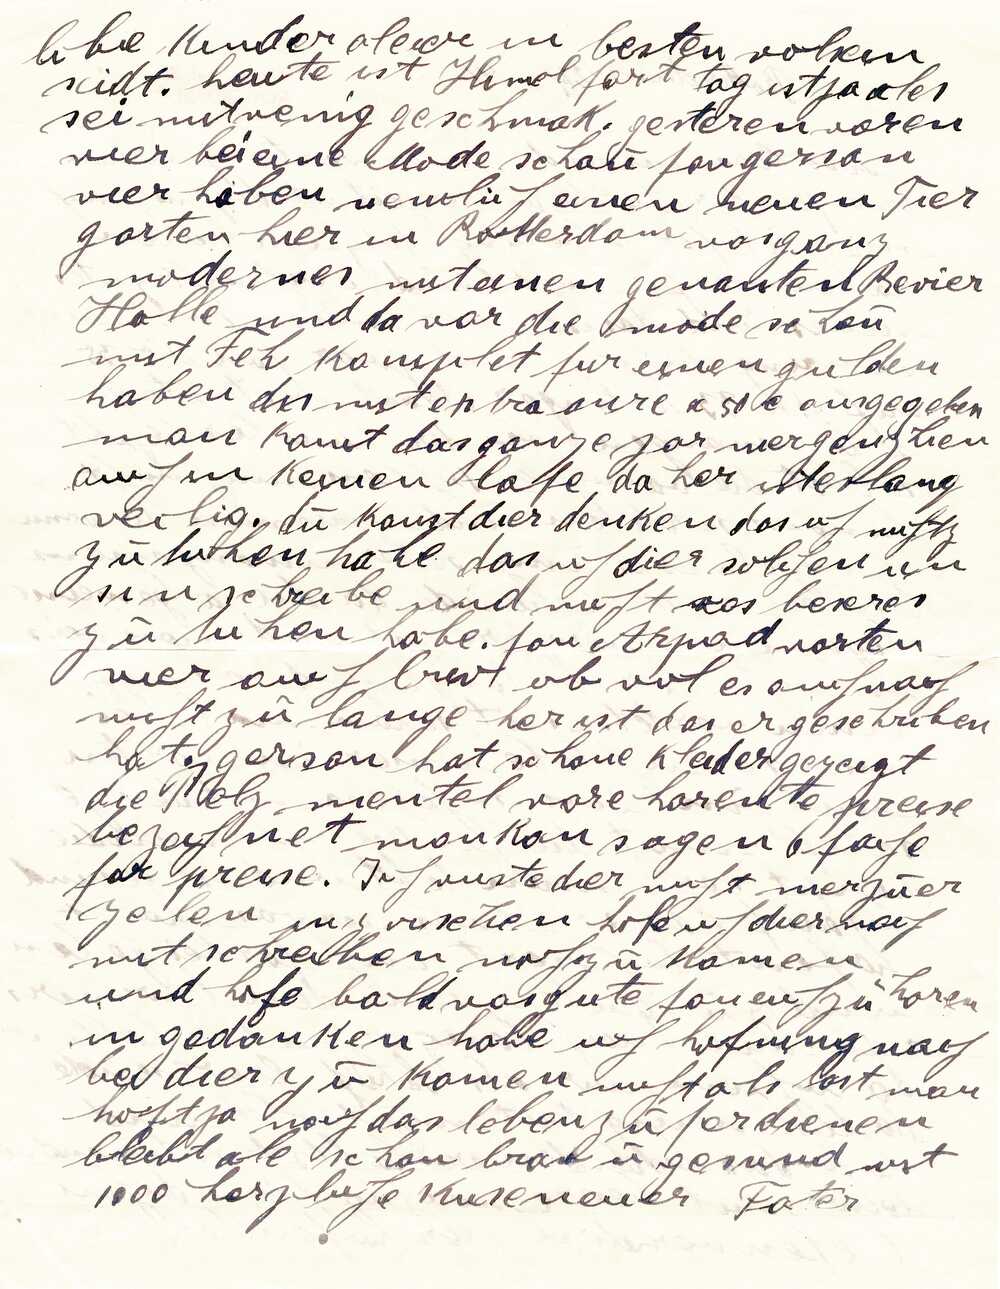 liebe Kinder aleeer in besten volsen
seidt. heute ist Himel fart tag ist ja ales
sei mit venig geschmak. gesteren voren
vier bei eine Mode schau fon gerson
vier haben nemlich einen neuen Tier
garten hier in Rotterdam vas ganz
modernes mit einen genanten Revier
Halle und da var die mode schau
mit Feh Komplet fur einen gulden
haben das mit extra a 50 c ausgegeben
man kant das ganze jar nergenz hien
auch in keinen lafe da her
veilig. du kanst dier denken das ich nichtz
zu tuhen habe das ich dier solchen un
sin schreibe und nicht vas beseres
zu tuhen habe. fon Arpad varten
vier auch brist ob vol es auch nach
nicht zu lange her ist das er geschriben
hat, gerson hat schone kleider gezeigt
die Pelz mentel vare horente preise
bezeichnet man kan sagen fache
far preise. Ich viste dier nicht mer zu er
zelen inzvischen hofe ich dier nach
mit schreiben noch zu komen
und hofe bald vas gute fon euch zu horen
in gedanken habe ich hofnung nach
bei dier zu komen nicht als ost man
hoft ja noch das leben zu ferdienen
bleibt ale schon brav u gesund mit
1000 herzliche Kuse neuer Fater